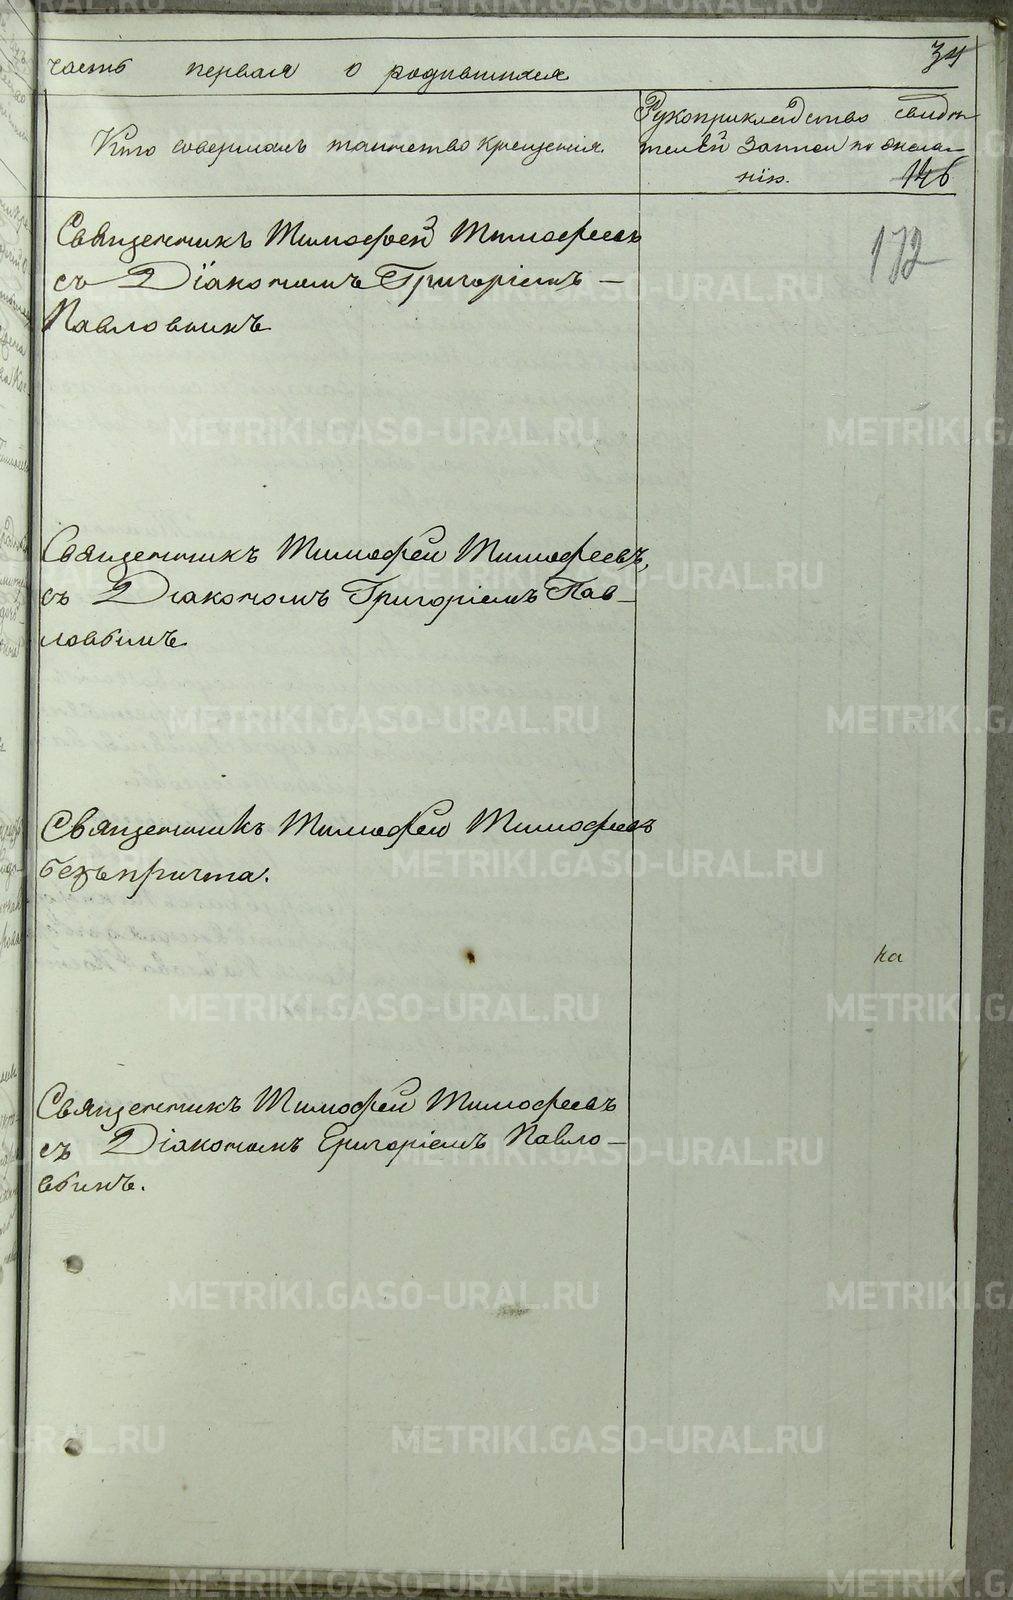 34
часть первая о родившихся
Кто совершалъ таинство крещенія.
Рукоприкладство свидѣ-
телей записи по жела-
нію.
146
172
Священникъ Тимофей Тимофеевъ
съ Діакономъ Григоріемъ —
Павловымъ
Священникъ Тимофей Тимофеевъ,
съ Діакономъ Григоріемъ Пав-
ловымъ
Священникъ Тимофей Тимофеевъ
безъ причта.
на
Священникъ Тимофей Тимофеевъ
съ Діакономъ Григоріемъ Павло-
вымъ.
METRIKI.GASO-URAL.RU